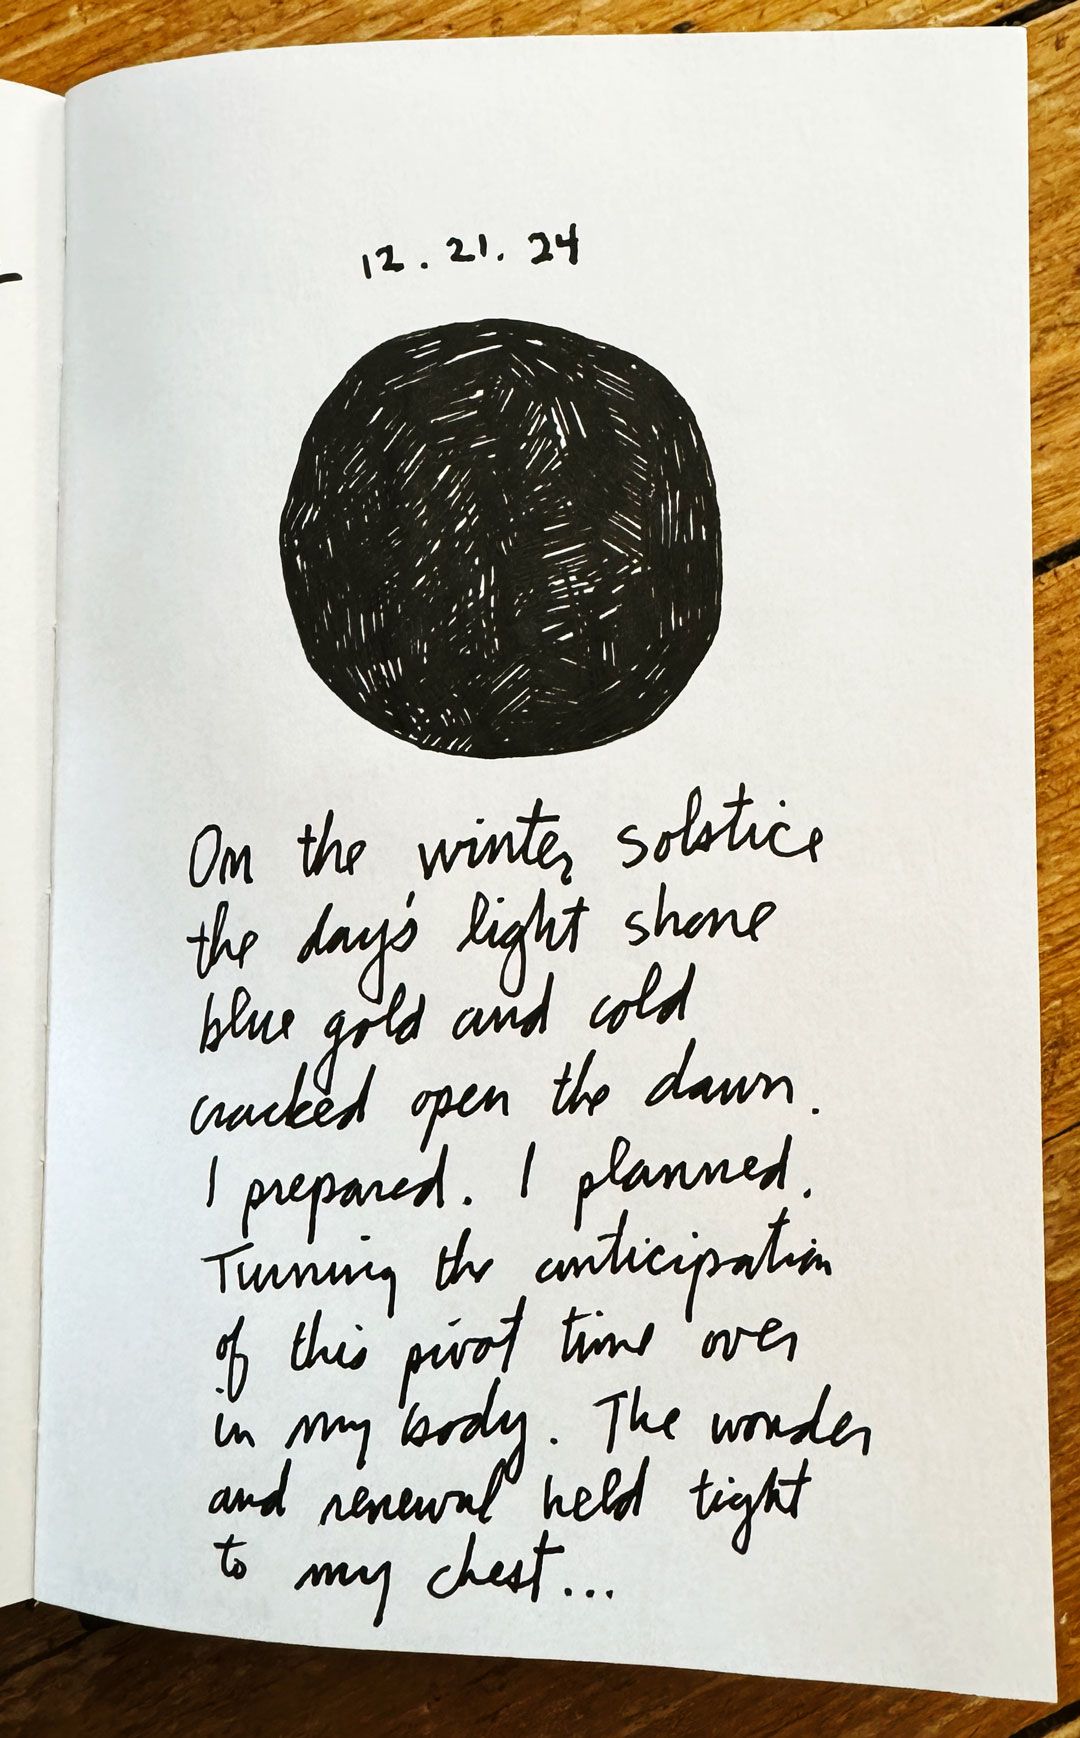 12.21.24
On the winter solstice
the day's light shone
blue gold and cold
cracked open the dawn.
I prepared. I planned.
Turning the anticipation
of this pivot time over
in my body. The wonder
and renewal held tight
to my chest...